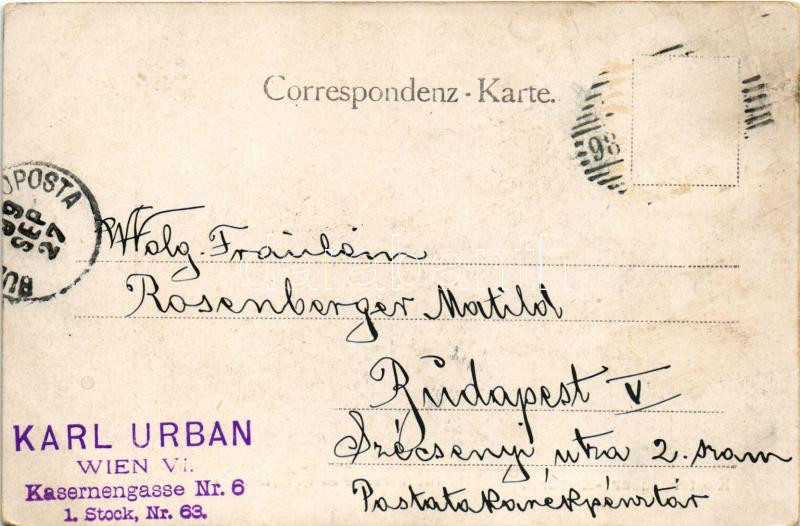 Correspondenz-Karte.
98
OPOSTA
99
SEP
27
BU
Wolg. Fräuläm
Rosenberger Matild
Budapest V
Szécsenyi utza 2. szam
Postatakarékpénztár
KARL URBAN
WIEN VI.
Kasernengasse Nr. 6
1. Stock, Nr. 63.
darabanth